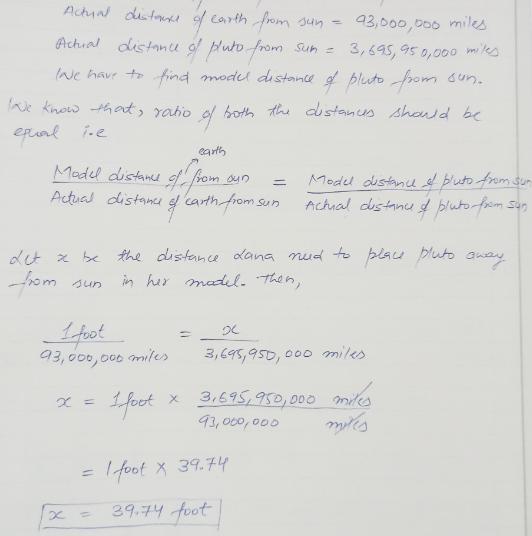 Actual distance of earth from sun = 93,000,000 miles
Actual distance of pluto from sun = 3,695,950,000 miles
We have to find model distance of pluto from sun.
We know that, ratio of both the distances should be
equal i.e
earth
Model distance of from sun = Model distance of pluto from sun
Actual distance of earth from sun Actual distance of pluto from sun
Let x be the distance Lana need to place pluto away
from sun in her model. Then,
1 foot = x
93,000,000 miles 3,695,950,000 miles
x = 1 foot × 3,695,950,000 miles
93,000,000 miles
= 1 foot × 39.74
x = 39.74 foot